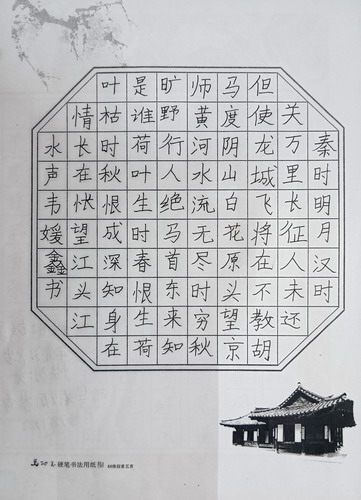 秦时明月汉时
关万里长征人未还
但使龙城飞将在不教胡
马度阴山白花原头望京
师黄河水流无尽时穷秋
旷野行人绝马首东来知
是谁荷叶生时春恨生荷
叶枯时秋恨成深知身在
情长在怅望江头江
水声韦媛鑫书
硬笔书法用纸